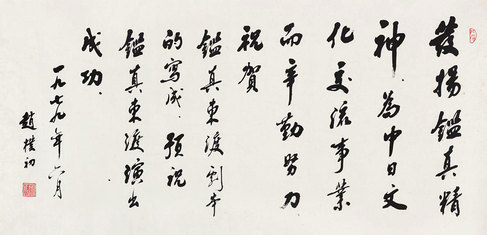 發揚鑑真精
神，為中日文
化交流事業
而辛勤努力
祝賀
鑑真東渡劇本
的寫成，預祝
鑑真東渡演出
成功。
一九七九年六月
趙樸初